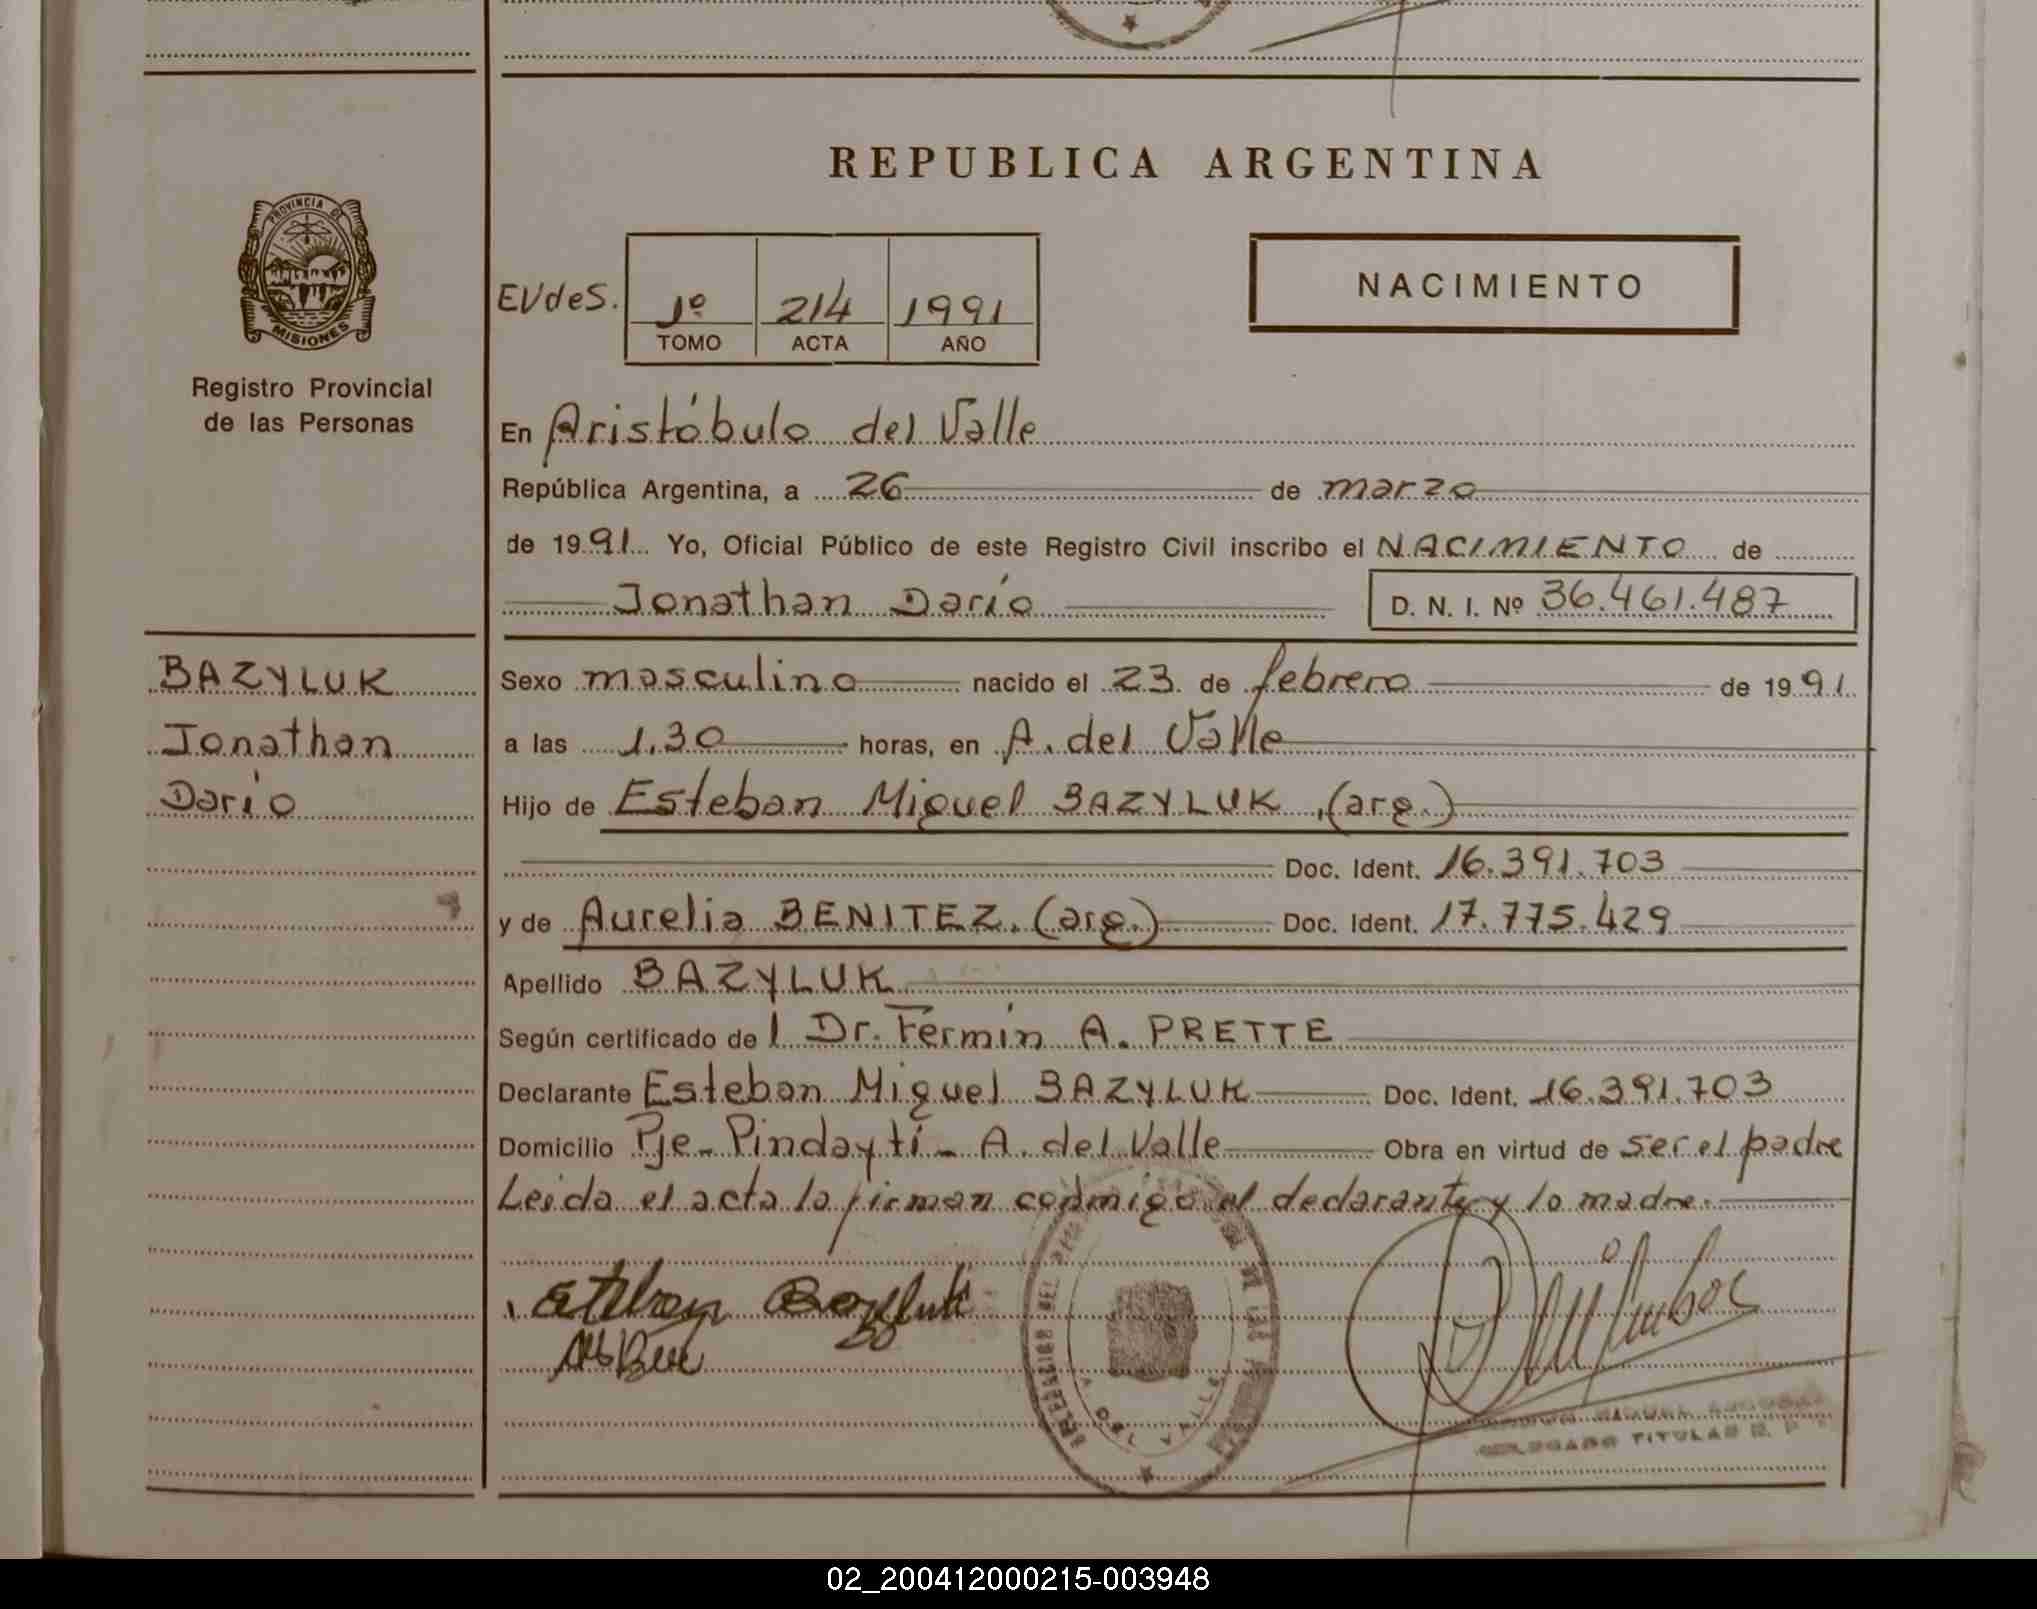 REPUBLICA ARGENTINA
PROVINCIA DE
MISIONES
Registro Provincial
de las Personas
NACIMIENTO
EVdeS. 1º 214 1991
TOMO ACTA AÑO
En Aristóbulo del Valle
República Argentina, a 26 de marzo
de 1991 Yo, Oficial Público de este Registro Civil inscribo el NACIMIENTO de
Jonathan Darío D. N. I. Nº 36.461.487
BAZYLUK
Jonathan
Darío
Sexo masculino nacido el 23 de febrero de 1991
a las 1,30 horas, en A. del Valle
Hijo de Esteban Miguel BAZYLUK, (arg.)
Doc. Ident. 16.391.703
y de Aurelia BENITEZ. (arg.) Doc. Ident. 17.775.429
Apellido BAZYLUK
Según certificado del Dr. Fermín A. PRETTE
Declarante Esteban Miguel BAZYLUK Doc. Ident. 16.391.703
Domicilio Pje- Pindaytí - A. del Valle Obra en virtud de ser el padre
Leída el acta la firman conmigo el declarante y la madre.
Esteban Bazyluk
A. DEL VALLE
DELEGADO TITULAR R. P.
02_200412000215-003948